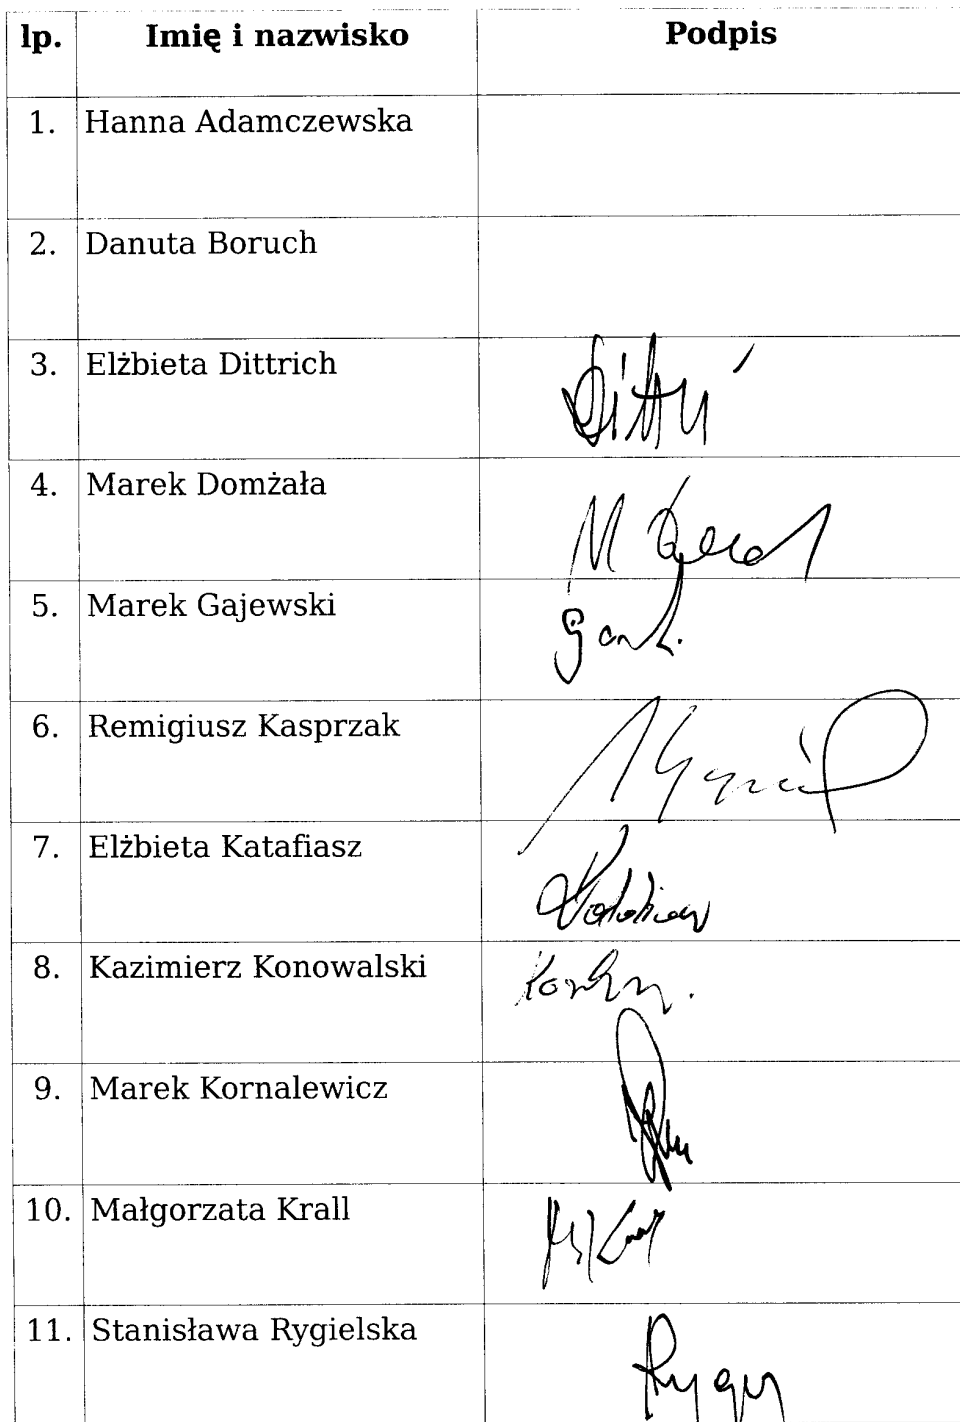 lp. Imię i nazwisko Podpis
1. Hanna Adamczewska
2. Danuta Boruch
3. Elżbieta Dittrich
4. Marek Domżała
5. Marek Gajewski
6. Remigiusz Kasprzak
7. Elżbieta Katafiasz
8. Kazimierz Konowalski
9. Marek Kornalewicz
10. Małgorzata Krall
11. Stanisława Rygielska